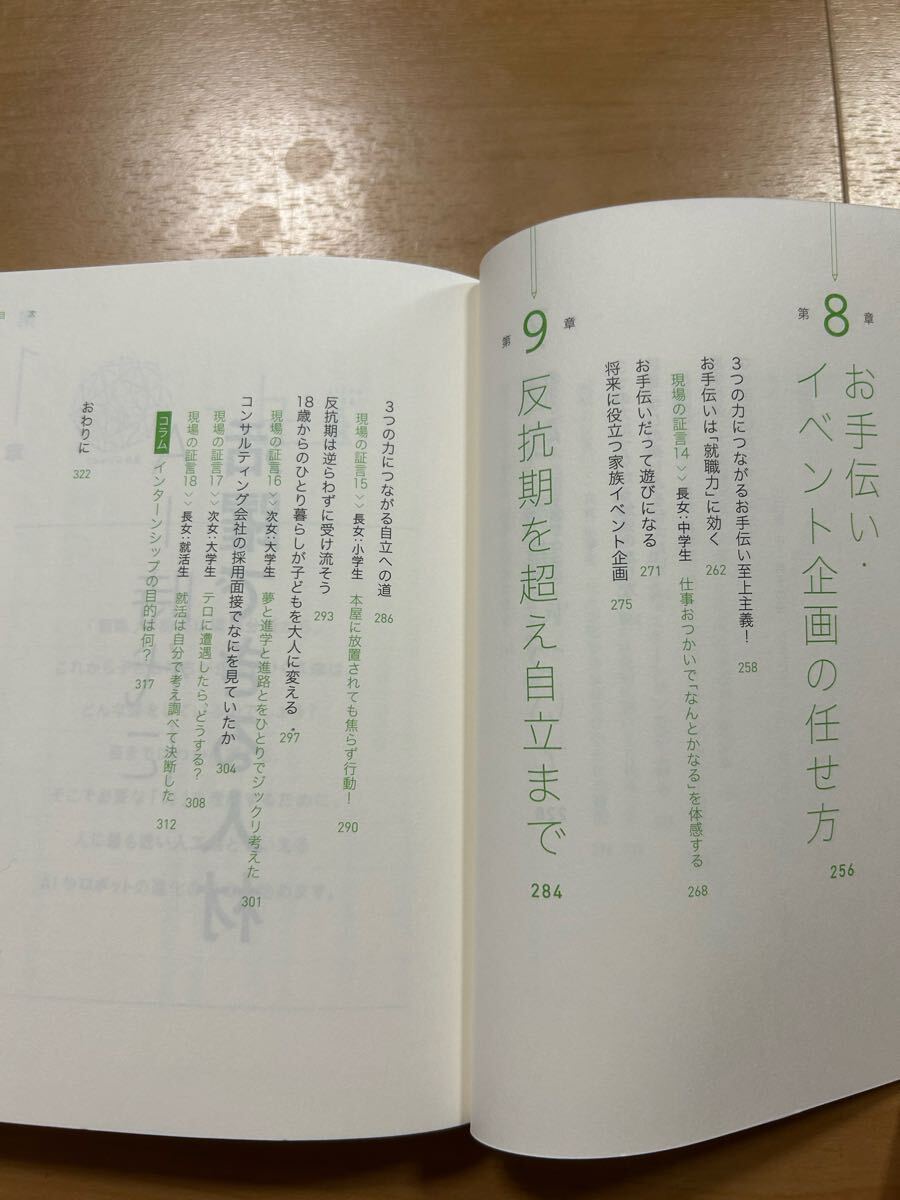 第8章
お手伝い・
イベント企画の任せ方 256
3つの力につながるお手伝い至上主義! 258
お手伝いは「就職力」に効く 262
現場の証言14>> 長女:中学生 仕事おつかいで「なんとかなる」を体感する 268
お手伝いだって遊びになる 271
将来に役立つ家族イベント企画 275
第9章
反抗期を超え自立まで 284
3つの力につながる自立への道 286
現場の証言15>> 長女:小学生 本屋に放置されても焦らず行動! 290
反抗期は逆らわずに受け流そう 293
18歳からのひとり暮らしが子どもを大人に変える 297
現場の証言16>> 次女:大学生 夢と進学と進路とをひとりでジックリ考えた 301
コンサルティング会社の採用面接でなにを見ていたか 304
現場の証言17>> 次女:大学生 テロに遭遇したら、どうする? 308
現場の証言18>> 長女:就活生 就活は自分で考え調べて決断した 312
コラム インターンシップの目的は何? 317
おわりに 322
目 次